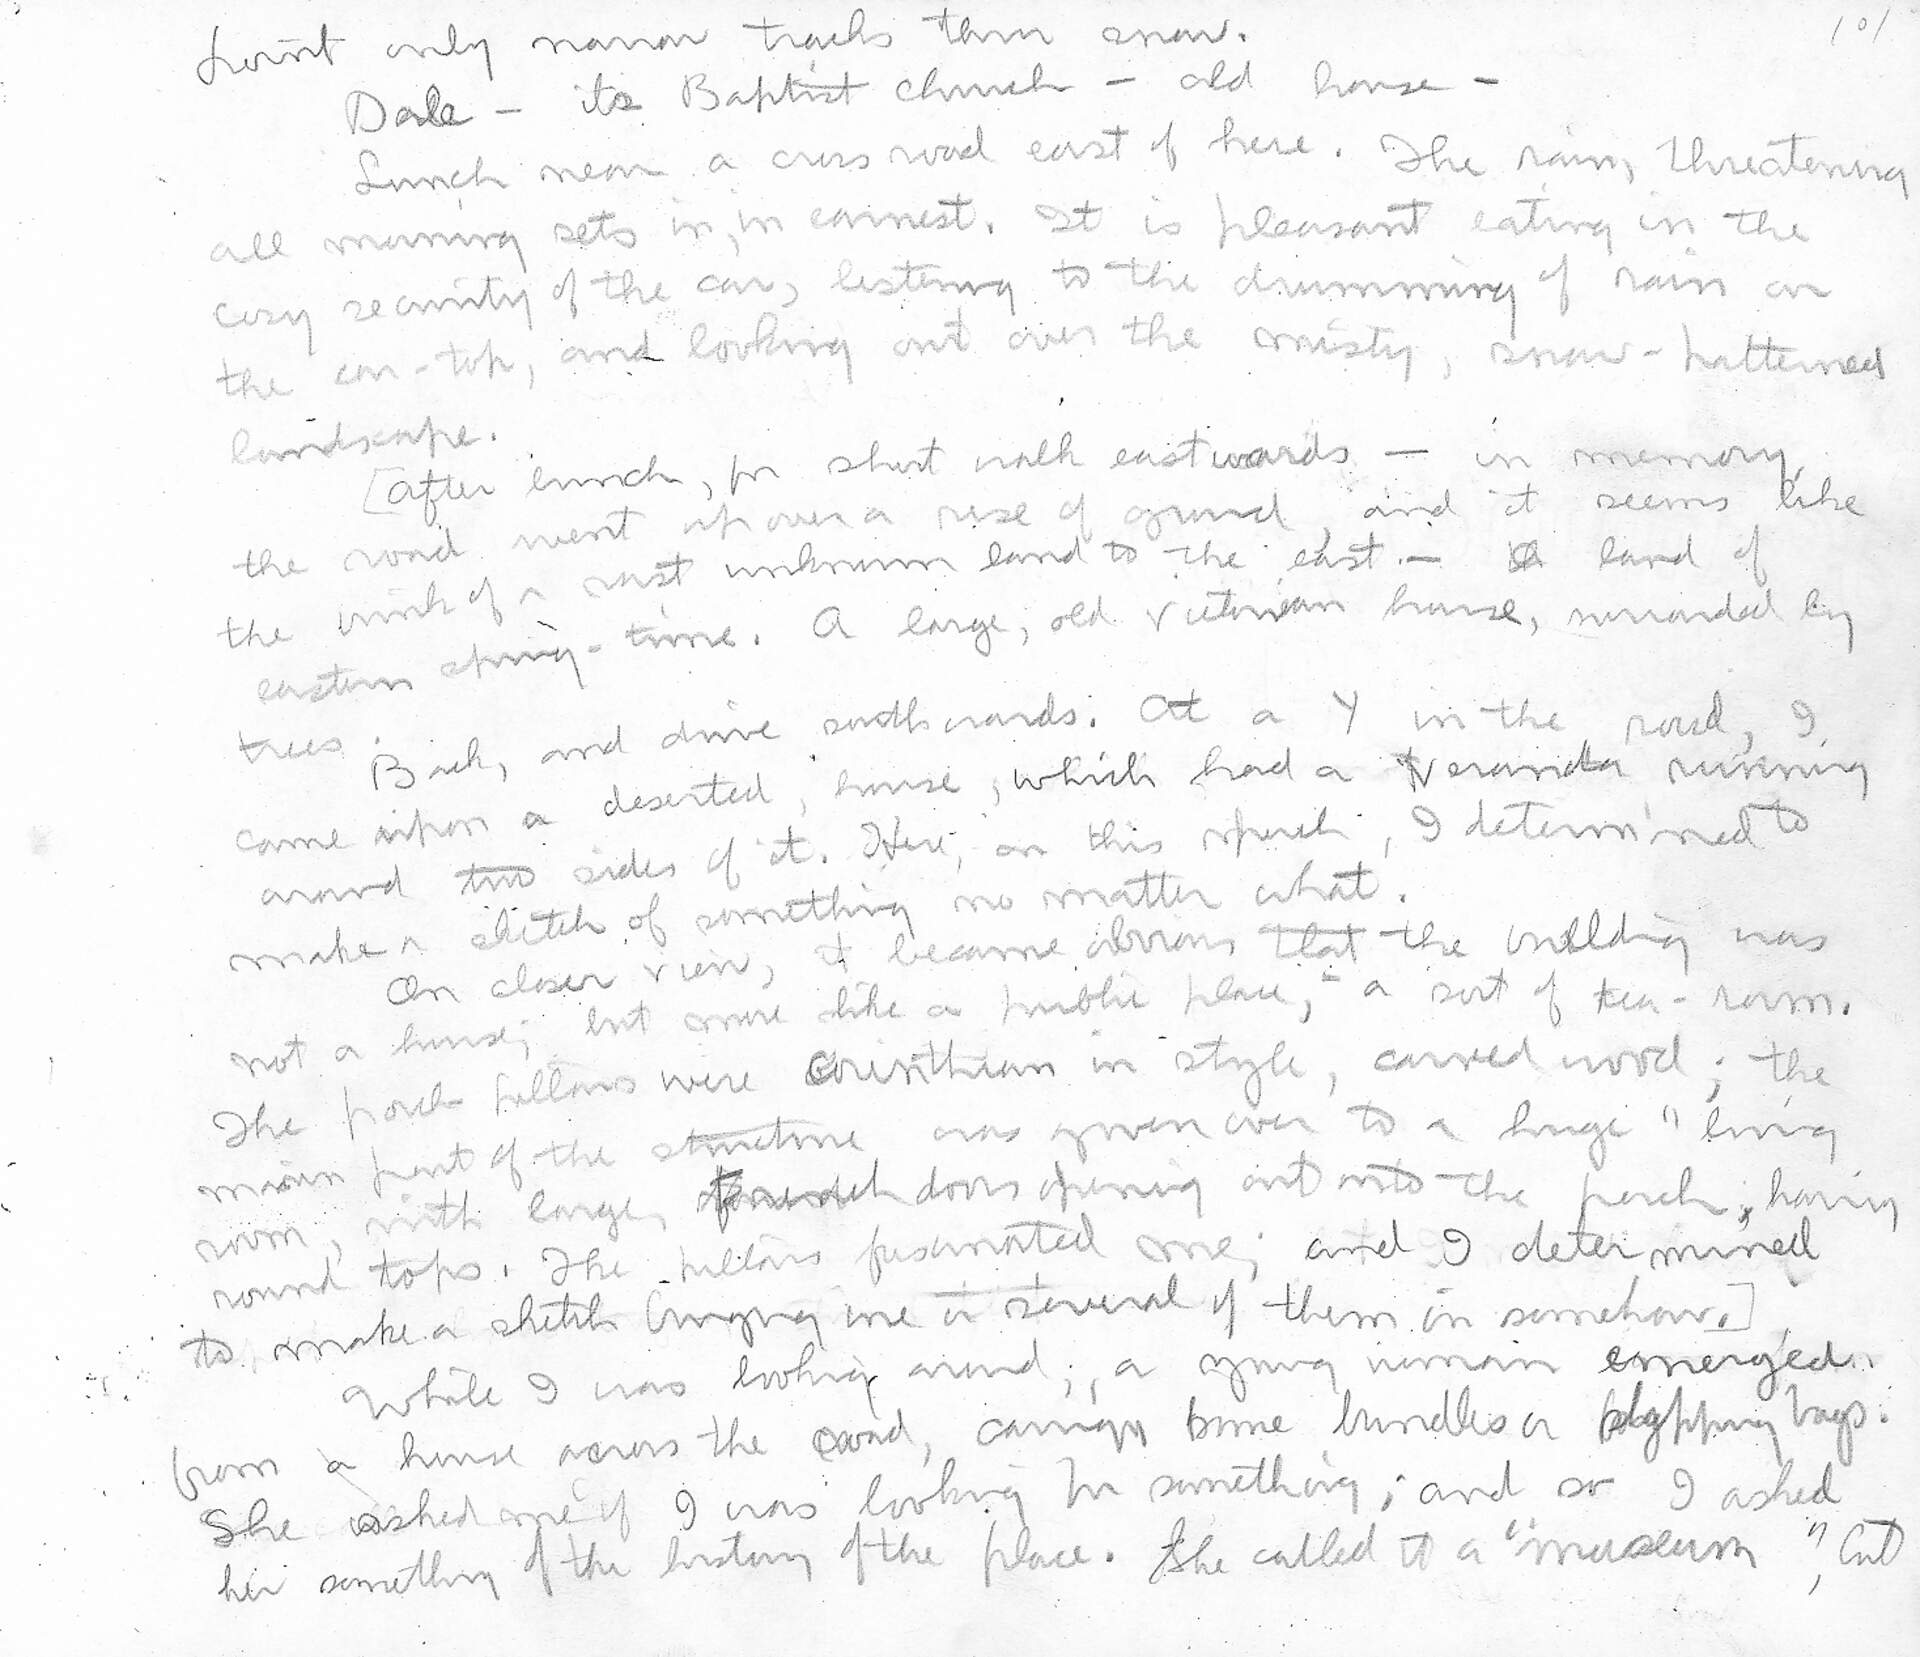 101
only narrow tracks thru snow.
Dale – its Baptist church – old house –
Lunch near a cross road east of here. The rain, threatening
all morning sets in, in earnest. It is pleasant eating in the
cozy security of the car, listening to the drumming of rain on
the car-top, and looking out over the misty, snow-patterned
landscape.
[After lunch, for short walk eastwards – in memory,
the road went up over a rise of ground, and it seems like
the brink of a vast unknown land to the east. – a land of
eastern spring-time. A large, old Victorian house, surrounded by
trees.
Back, and drive southwards. At a Y in the road, I
came upon a deserted house, which had a veranda running
around two sides of it. Here, on this porch, I determined to
make a sketch of something no matter what.
On closer view, it became obvious that the building was
not a house, but more like a public place, – a sort of tea-room.
The porch pillars were Corinthian in style, carved wood; the
main part of the structure was given over to a huge "living
room, with large, french doors opening out onto the porch, having
round tops. The pillars fascinated me; and I determined
to make a sketch bringing one or several of them in somehow.]
While I was looking around, a young woman emerged
from a house across the road, carrying some bundles or shopping bags.
She asked me if I was looking for something; and so I asked
her something of the history of the place. She called it a "museum", but